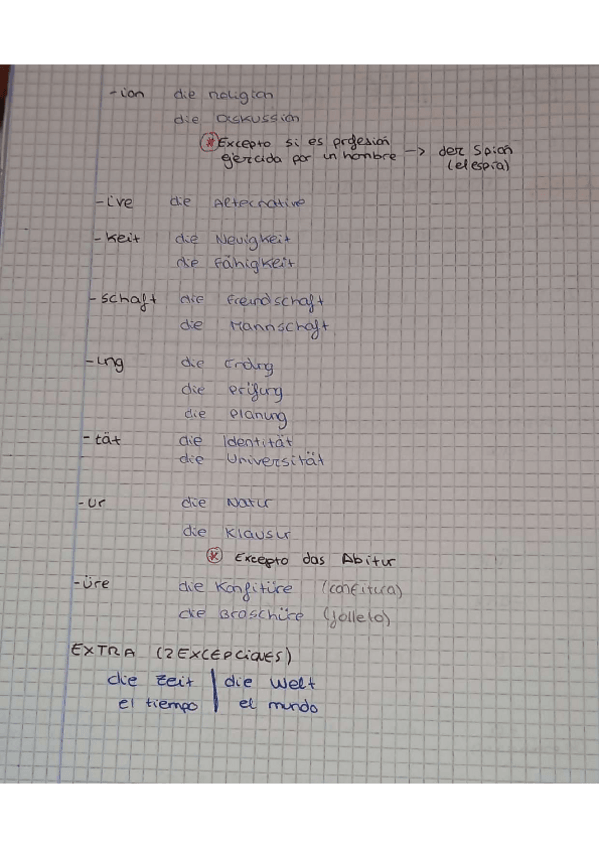 -ion die Religion
die Diskussion
* Excepto si es profesión
ejercida por un hombre -> der Spion
(el espía)
-ive die Alternative
-keit die Neuigkeit
die Fähigkeit
-schaft die Freundschaft
die Mannschaft
-ung die
die Prüfung
die Planung
-tät die Identität
die Universität
-ur die Natur
die Klausur
* Excepto das Abitur
-üre die Konfitüre (confitura)
die Broschüre (folleto)
EXTRA (2 EXCEPCIONES)
die Zeit | die Welt
el tiempo | el mundo